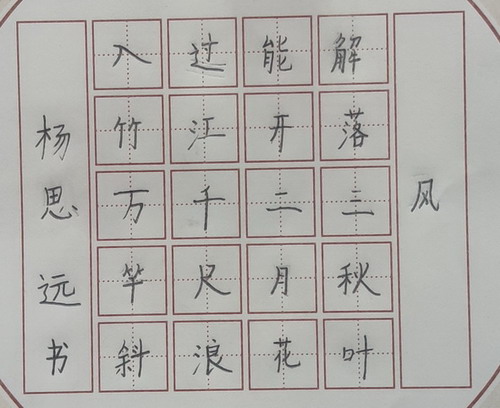 风
解落三秋叶
能开二月花
过江千尺浪
入竹万竿斜
杨思远书